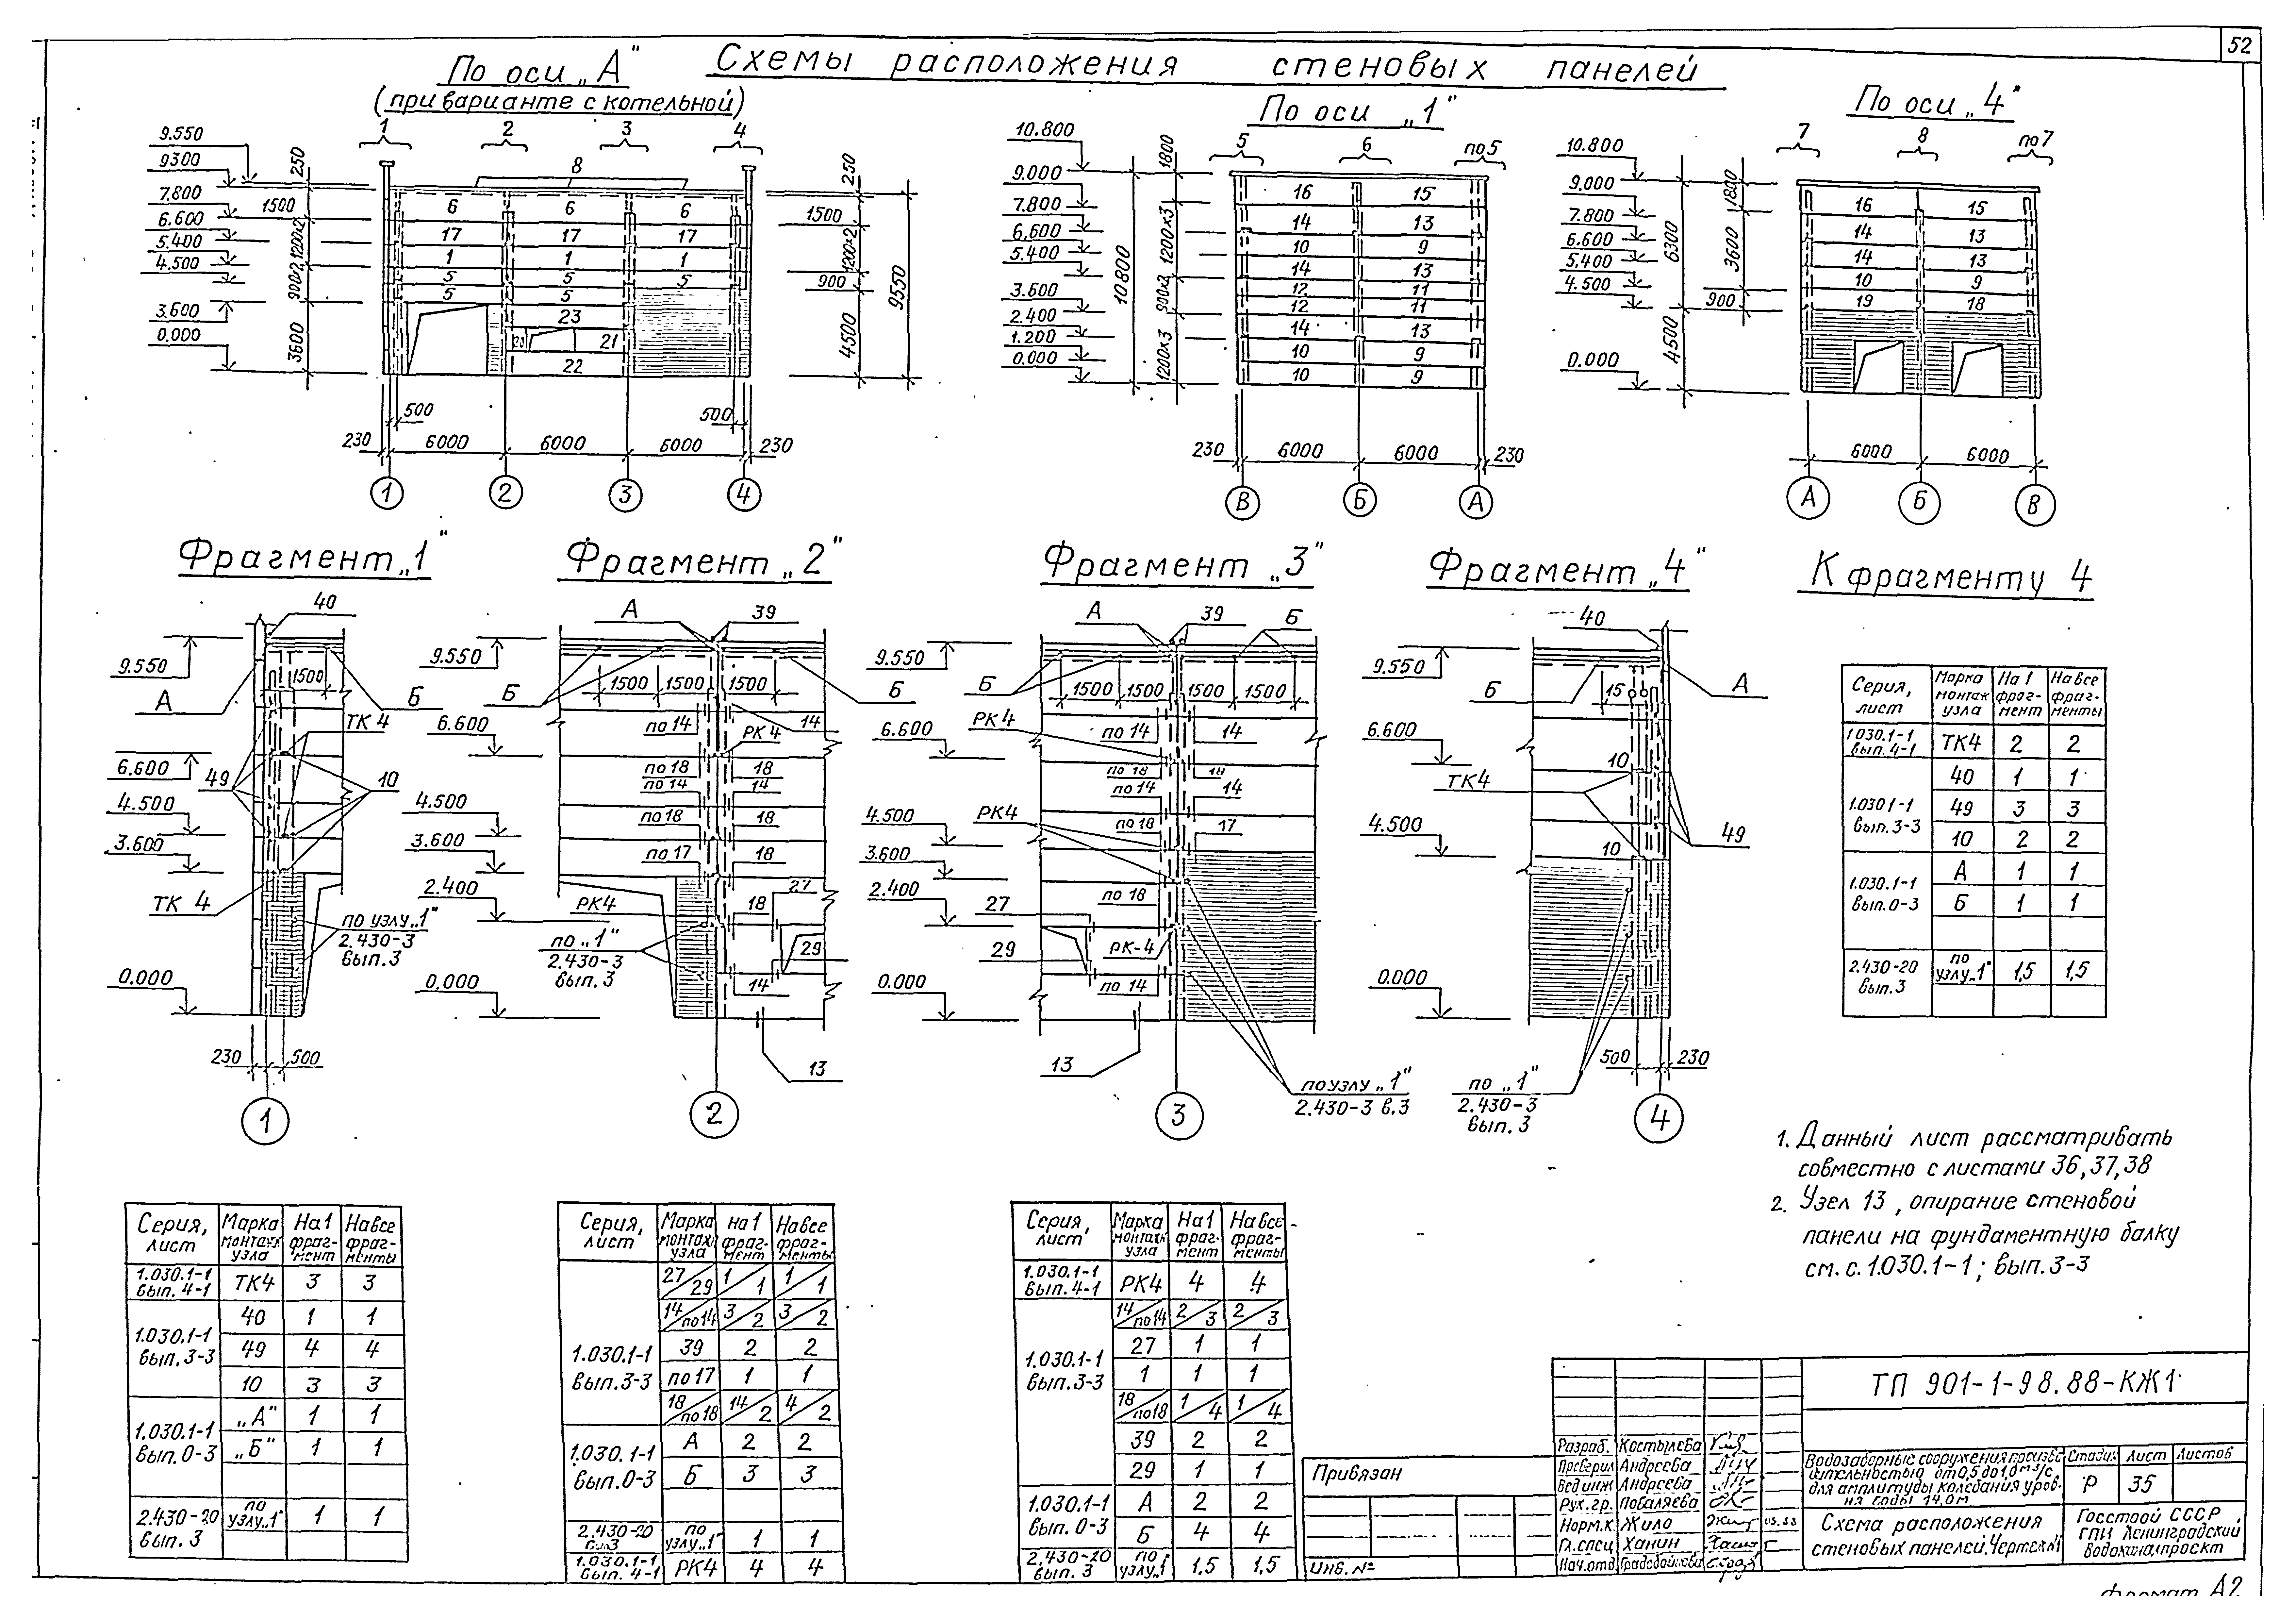 52
Схемы расположения стеновых панелей
По оси „А"
(при варианте с котельной)
По оси „1"
По оси „4"
1 2 3 4
9.550
9300
7.800
6.600
5.400
4.500
3.600
0.000
250
1500
1200×2
900×2
3600
8
6 6 6
17 17 17
1 1 1
5 5 5
5 5
23
21
22
250
1500
1200×2
900
4500
9550
500 500
230 6000 6000 6000 230
1 2 3 4
5 6 по5
10.800
9.000
7.800
6.600
5.400
3.600
2.400
1.200
0.000
1800
1200×3
900×2
1200×3
10800
16 15
14 13
10 9
14 13
12 11
12 11
14 13
10 9
10 9
230 6000 6000 230
В Б А
7 8 по7
10.800
9.000
7.800
6.600
5.400
4.500
0.000
6300
4500
1800
3600
900
16 15
14 13
14 13
10 9
19 18
6000 6000
А Б В
Фрагмент „1"
40
9.550
1500
А
Б
ТК 4
6.600
49
10
4.500
3.600
ТК 4
по узлу „1"
2.430-3
вып.3
0.000
230 500
1
Фрагмент „2"
А
39
9.550
Б
1500 1500 1500
Б
по 14
14
6.600
РК 4
по 18
18
по 14
14
4.500
по 18
18
3.600
по 17
18
2.400
27
РК4
18
по „1"
2.430-3
вып. 3
29
14
0.000
13
2
Фрагмент „3"
А
39
Б
9.550
Б
1500 1500 1500 1500
РК 4
по 14
14
6.600
по 18
18
по 14
14
4.500
РК4
по 18
17
3.600
2.400
по 18
27
29
РК-4
0.000
по 14
13
по узлу „1"
2.430-3 в.3
3
Фрагмент „4"
40
9.550
Б
15
А
6.600
10
ТК 4
4.500
49
10
0.000
500 230
по „1"
2.430-3
вып. 3
4
К фрагменту 4
Серия, лист | Марка монтаж узла | На 1 фраг-мент | На все фраг-менты
1.030.1-1 вып. 4-1 | ТК4 | 2 | 2
1.030.1-1 вып.3-3 | 40 | 1 | 1
49 | 3 | 3
10 | 2 | 2
1.030.1-1 вып.0-3 | А | 1 | 1
Б | 1 | 1
2.430-20 вып.3 | по узлу „1" | 1,5 | 1,5
1. Данный лист рассматривать
совместно с листами 36,37,38
2. Узел 13, опирание стеновой
панели на фундаментную балку
см. с. 1.030.1-1; вып.3-3
Серия, лист | Марка монтаж узла | На 1 фраг-мент | На все фраг-менты
1.030.1-1 вып. 4-1 | ТК4 | 3 | 3
1.030.1-1 вып.3-3 | 40 | 1 | 1
49 | 4 | 4
10 | 3 | 3
1.030.1-1 вып.0-3 | „А" | 1 | 1
„Б" | 1 | 1
2.430-20 вып. 3 | по узлу „1" | 1 | 1
Серия, лист | Марка монтаж узла | на 1 фраг-мент | На все фраг-менты
1.030.1-1 вып.3-3 | 27/29 | 1/1 | 1/1
14/по14 | 3/2 | 3/2
39 | 2 | 2
по 17 | 1 | 1
18/по18 | 14/2 | 4/2
1.030.1-1 вып.0-3 | А | 2 | 2
Б | 3 | 3
2.430-20 | по узлу „1" | 1 | 1
1.030.1-1 вып. 4-1 | РК4 | 4 | 4
Серия, лист | Марка монтаж узла | На 1 фраг-мент | На все фраг-менты
1.030.1-1 вып. 4-1 | РК4 | 4 | 4
1.030.1-1 вып.3-3 | 14/по14 | 2/3 | 2/3
27 | 1 | 1
1 | 1 | 1
18/по18 | 1/4 | 1/4
39 | 2 | 2
29 | 1 | 1
1.030.1-1 вып. 0-3 | А | 2 | 2
Б | 4 | 4
2.430-20 вып. 3 | по узлу „1" | 1,5 | 1,5
Привязан
Инв. №
ТП 901-1-98.88-КЖ1
Разраб. Костылева
Проверил Андреева
Вед инж Андреева
Рук. гр.
Норм.к. Жило
Гл.спец Ханин
Нач.отд
Водозаборные сооружения произво-
дительностью от 0,5 до 1,0 м3/с
для амплитуды колебания уров-
ня воды 14,0м
Стадия Лист Листов
Р 35
Схема расположения
стеновых панелей. Чертеж 1
Госстрой СССР
ГПИ Ленинградский
Водоканалпроект
Формат А2